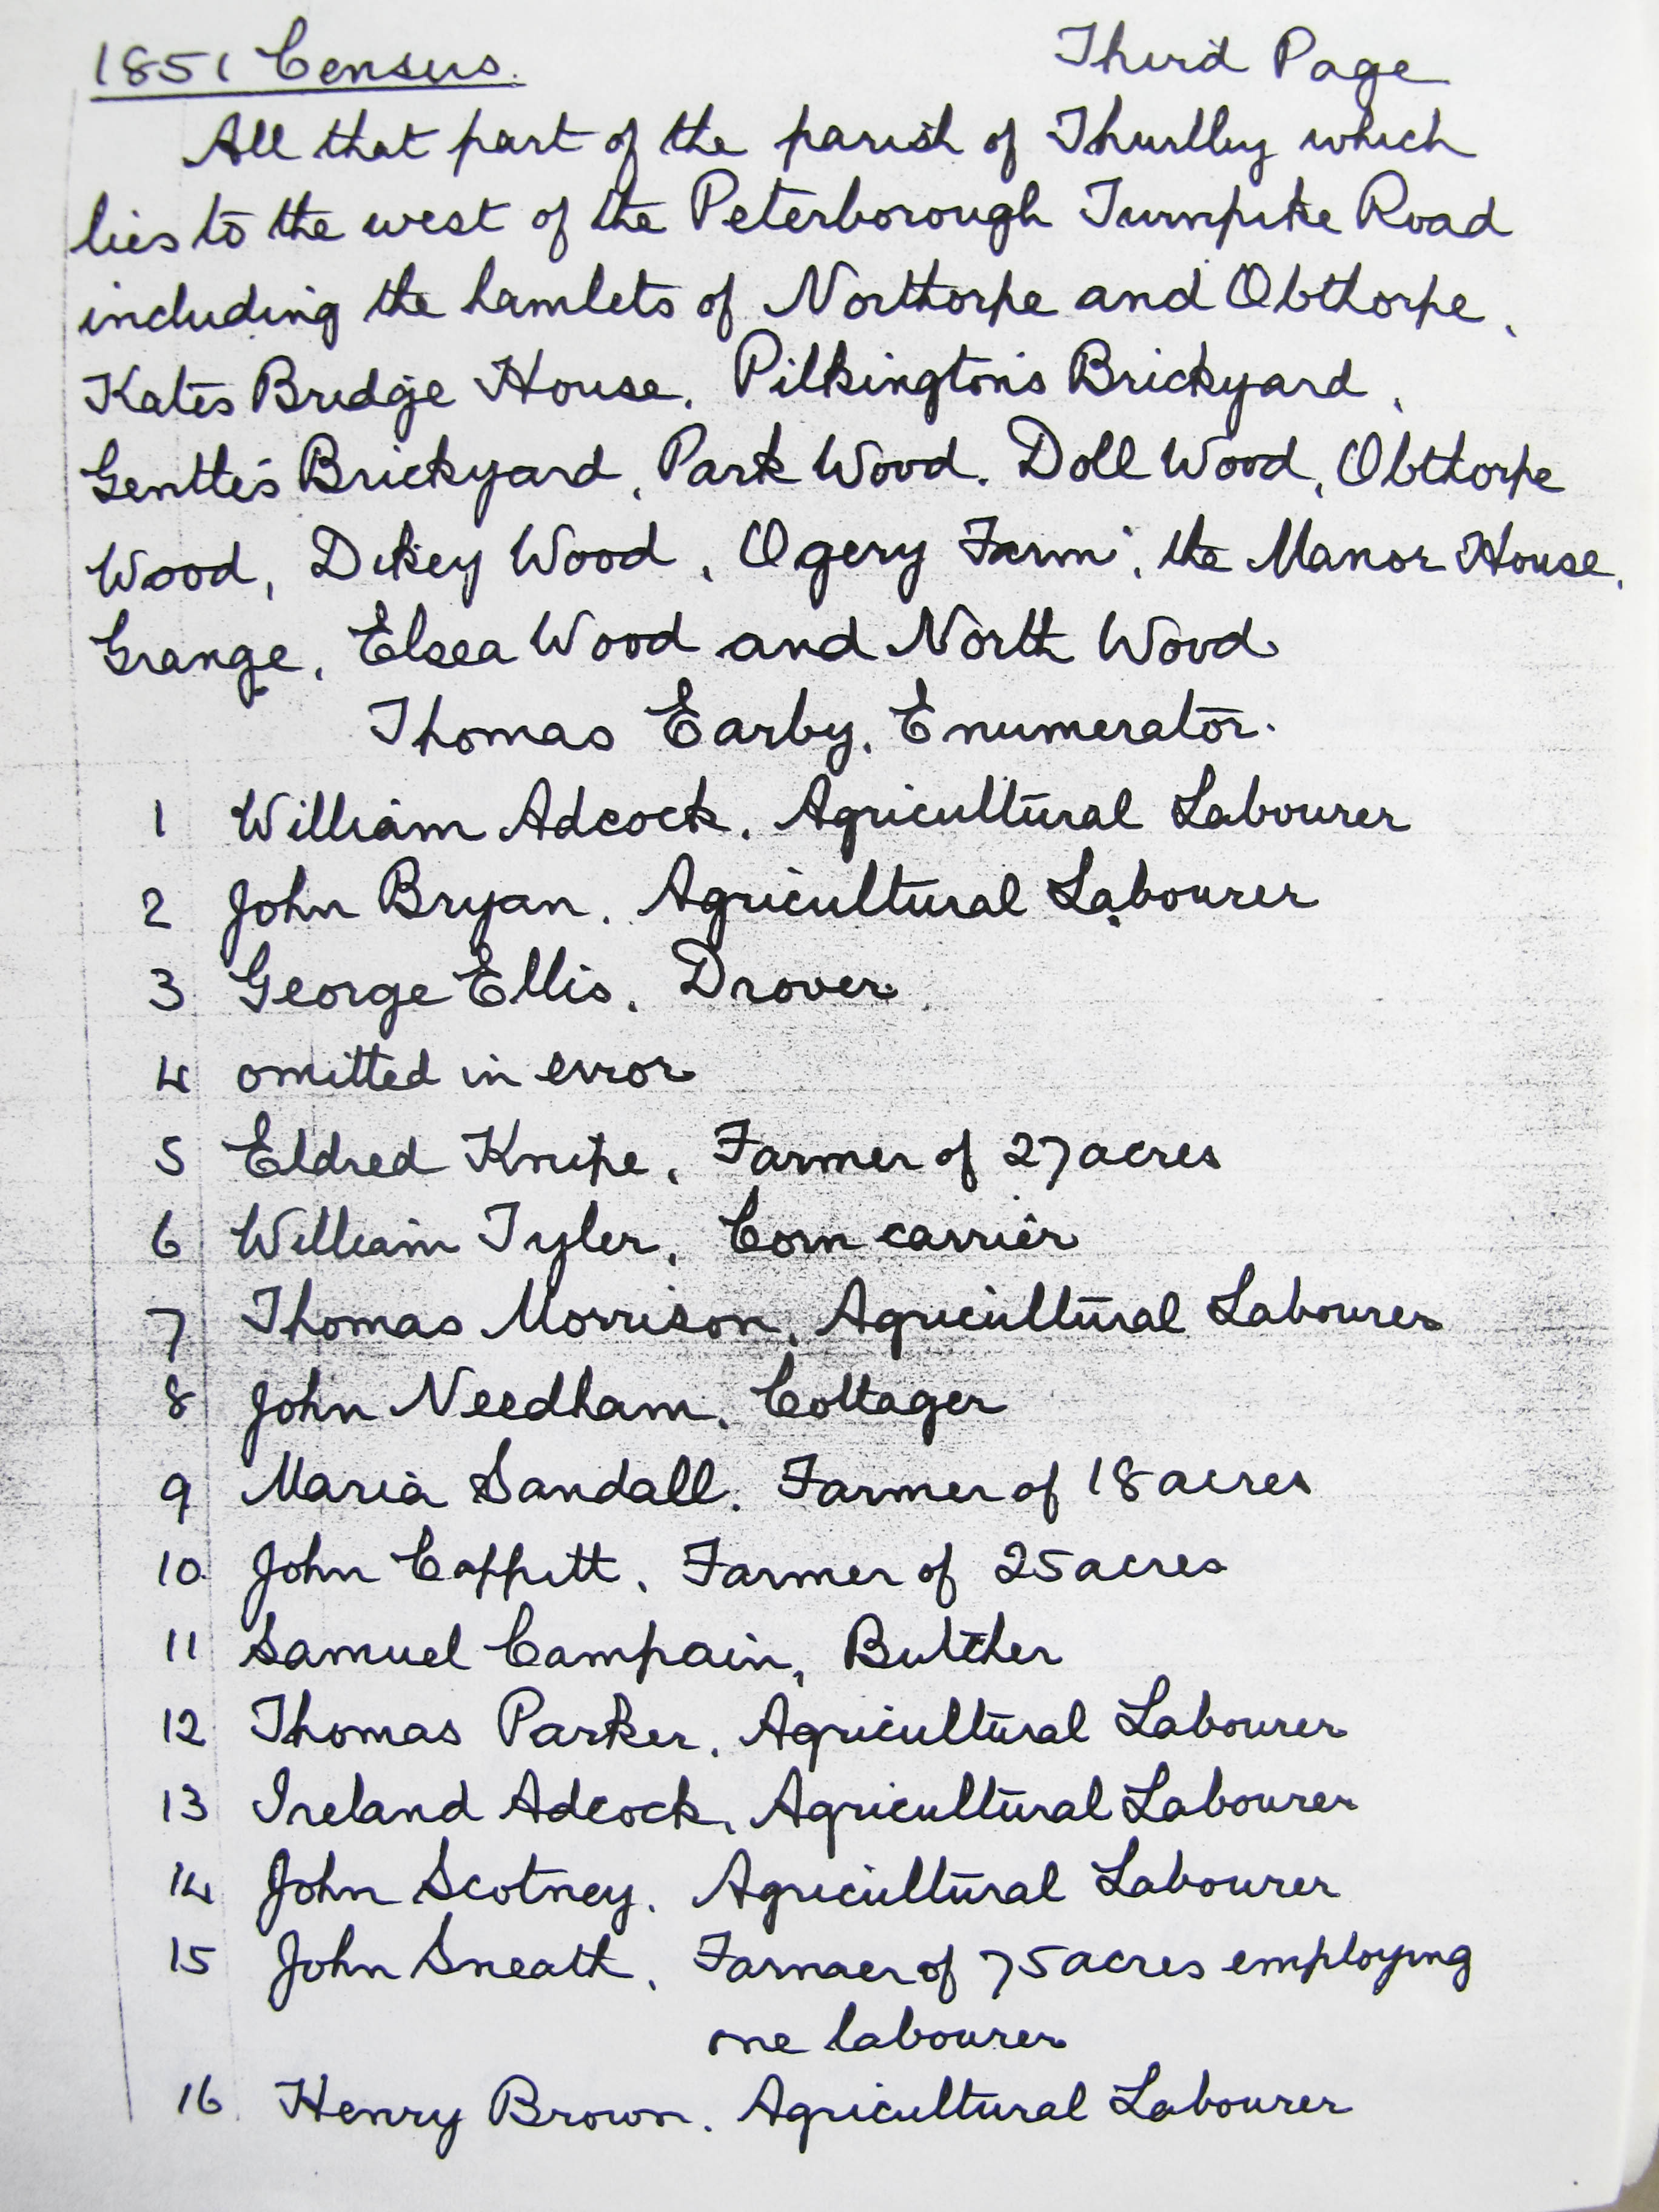 1851 Census. Third Page
All that part of the parish of Thurlby which
lies to the west of the Peterborough Turnpike Road
including the hamlets of Northorpe and Obthorpe,
Kates Bridge House, Pilkington's Brickyard,
Gentle's Brickyard, Park Wood, Doll Wood, Obthorpe
Wood, Dikey Wood, Ogery Farm, the Manor House,
Grange, Elsea Wood and North Wood
Thomas Earby, Enumerator.
1 William Adcock, Agricultural Labourer
2 John Bryan, Agricultural Labourer
3 George Ellis, Drover
4 omitted in error
5 Eldred Knipe, Farmer of 27 acres
6 William Tyler, Corn carrier
7 Thomas Morrison, Agricultural Labourer
8 John Needham, Cottager
9 Maria Sandall. Farmer of 18 acres
10 John Coppitt, Farmer of 25 acres
11 Samuel Campain, Butcher
12 Thomas Parker, Agricultural Labourer
13 Ireland Adcock, Agricultural Labourer
14 John Scotney, Agricultural Labourer
15 John Sneath, Farmer of 75 acres employing
one labourer
16 Henry Brown. Agricultural Labourer